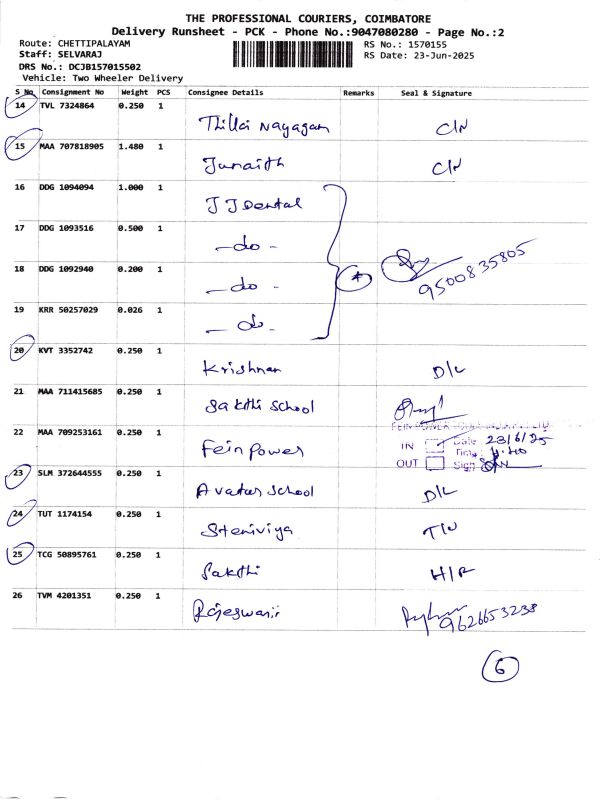 THE PROFESSIONAL COURIERS, COIMBATORE
Delivery Runsheet - PCK - Phone No.:9047080280 - Page No.:2
Route: CHETTIPALAYAM RS No.: 1570155
Staff: SELVARAJ RS Date: 23-Jun-2025
DRS No.: DCJB157015502
Vehicle: Two Wheeler Delivery
S No Consignment No Weight PCS Consignee Details Remarks Seal & Signature
14 TVL 7324864 0.250 1 Thillai Nayagam C/N
15 MAA 707818905 1.480 1 Junaith C/N
16 DDG 1094094 1.000 1 J J Dental
17 DDG 1093516 0.500 1 - do -
18 DDG 1092940 0.200 1 - do - 4 9500835805
19 KRR 50257029 0.026 1 - do -
20 KVT 3352742 0.250 1 Krishnan D/L
21 MAA 711415685 0.250 1 Sakthi School
22 MAA 709253161 0.250 1 Feinpower
FEIN POWER
IN Date 23/6/25
Time
OUT Sign
23 SLM 372644555 0.250 1 Avatar School D/L
24 TUT 1174154 0.250 1 Steniviya
25 TCG 50895761 0.250 1 Sakthi
26 TVM 4201351 0.250 1 Rajeswari 9626653238
6